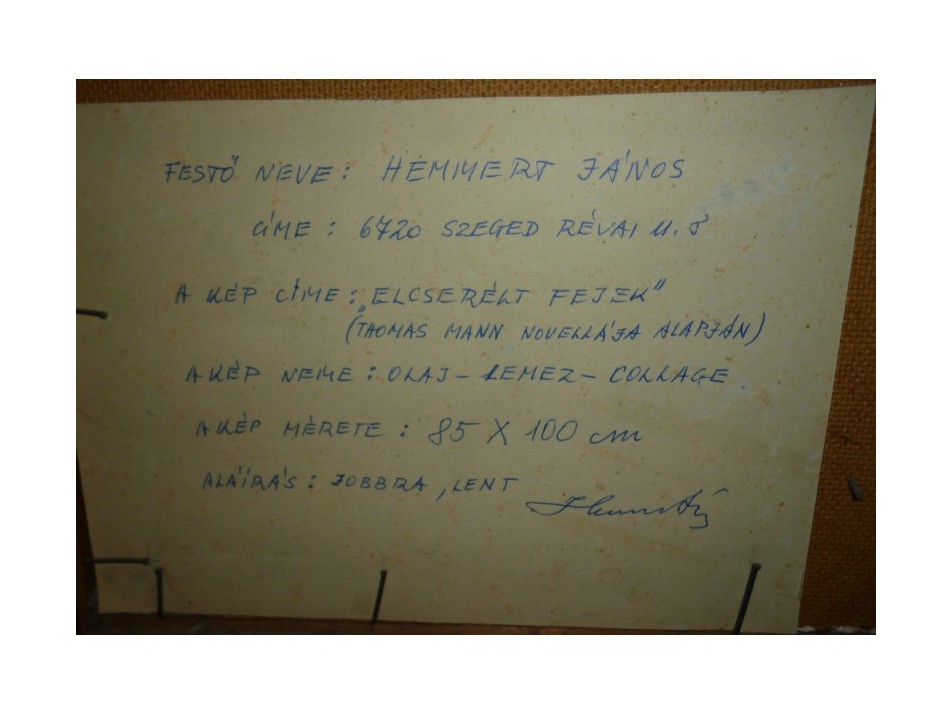 FESTŐ NEVE: HEMMERT JÁNOS
CÍME: 6720 SZEGED RÉVAI U. 5
A KÉP CÍME: „ELCSERÉLT FEJEK"
(THOMAS MANN NOVELLÁJA ALAPJÁN)
A KÉP NEME: OLAJ-LEMEZ-COLLAGE
A KÉP MÉRETE: 85 X 100 cm
ALÁÍRÁS: JOBBRA, LENT